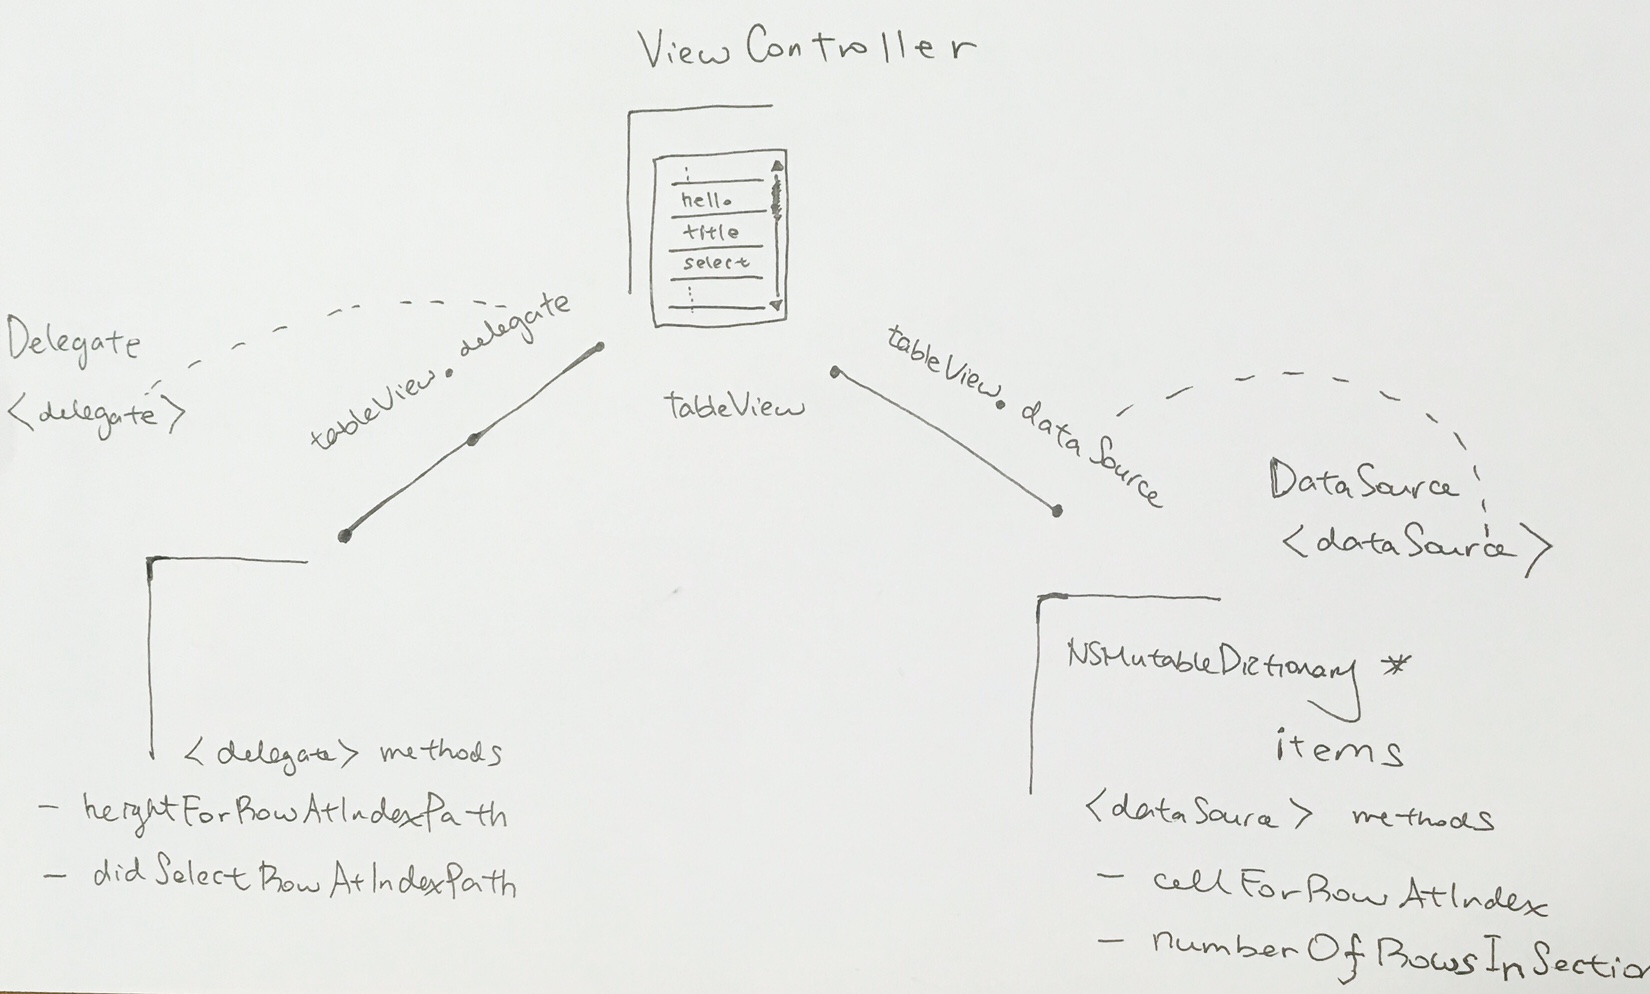 ViewController
hello
title
select
Delegate
<delegate>
tableView.delegate
tableView
tableView.dataSource
DataSource
<dataSource>
<delegate> methods
- heightForRowAtIndexPath
- didSelectRowAtIndexPath
NSMutableDictionary *
items
<dataSource> methods
- cellForRowAtIndex
- numberOfRowsInSection